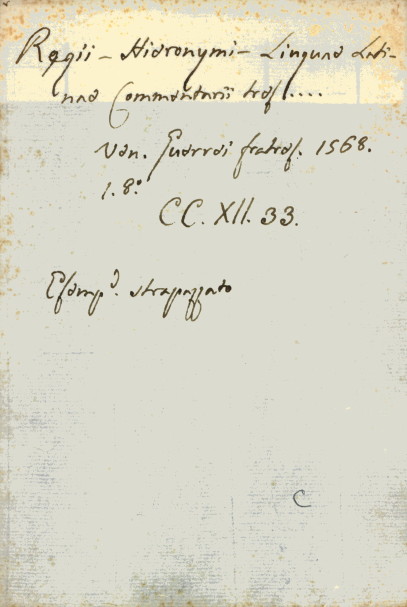 Regii - Hieronymi - Linguae Lati-
nae Commentarii tres....
Ven. Guerrei fratres. 1568.
1. 8.°
CC. XII. 33.
Esemp.° strapazzato
C